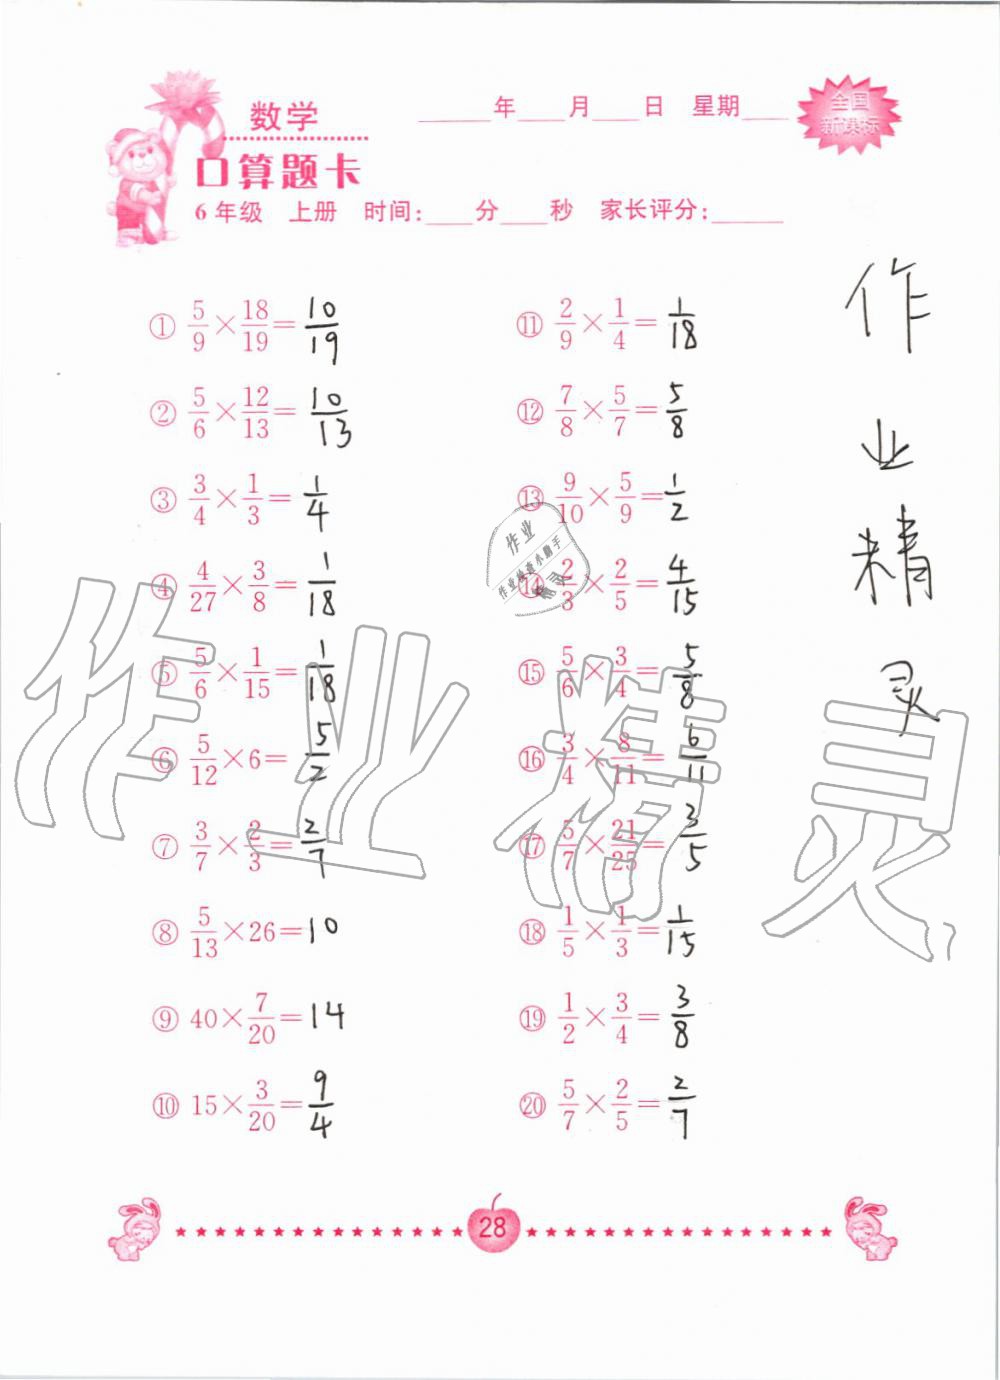 数学
____年____月____日 星期____
全国
新课标
口算题卡
6年级 上册 时间:____分____秒 家长评分:______
① 5/9 × 18/19 = 10/19
② 5/6 × 12/13 = 10/13
③ 3/4 × 1/3 = 1/4
④ 4/27 × 3/8 = 1/18
⑤ 5/6 × 1/15 = 1/18
⑥ 5/12 × 6 = 5/2
⑦ 3/7 × 2/3 = 2/7
⑧ 5/13 × 26 = 10
⑨ 40 × 7/20 = 14
⑩ 15 × 3/20 = 9/4
⑪ 2/9 × 1/4 = 1/18
⑫ 7/8 × 5/7 = 5/8
⑬ 9/10 × 5/9 = 1/2
⑭ 2/3 × 2/5 = 4/15
⑮ 5/6 × 3/4 = 5/8
⑯ 3/4 × 8/11 = 6/11
⑰ 5/7 × 21/25 = 3/5
⑱ 1/5 × 1/3 = 1/15
⑲ 1/2 × 3/4 = 3/8
⑳ 5/7 × 2/5 = 2/7
作
业
精
灵
作业
作业检查小助手
精灵
作业精灵
28